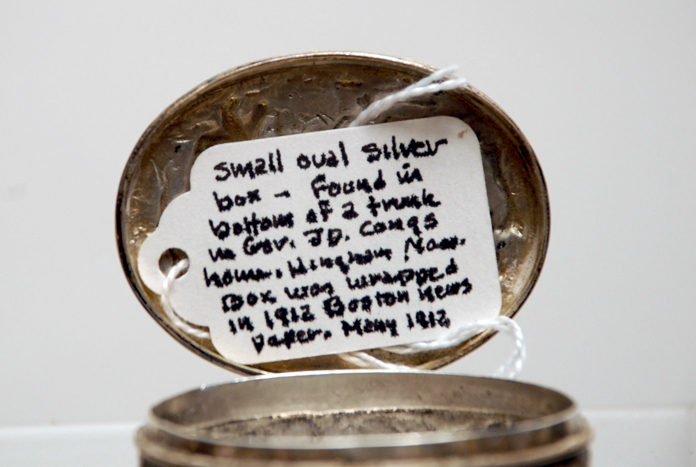 Small oval Silver
box - Found in
bottom of a trunk
in Gov. JD. Longs
home. Hingham Mass.
Box was wrapped
in 1912 Boston news
paper. May 1912